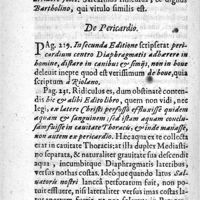 Bartholino, qui vitulo similis est.
De Pericardio.
PAg. 219. In secunda Editione scripserat peri-
cardium centro Diaphragmatis adhærere in
homine, distare in canibus & simijs, non in bove
deleuit inepte quod est verissimum de boue, quia
Scriptum à Riolano.
Pag. 231. Ridiculus es, dum obstinatè conten-
dis hîc & alibi Edito libro, quem non vidi, nec
legi, ex latere Christi persossi effluxisse quidem
aquam & sanguinem; sed istam aquam conclu-
sam fuisse in cauitate Thoracis, & inde manasse,
non autem è pericardio. Hæc aqua ex te collecta
erat in cauitate Thoracis; at illa duplex Mediasti-
no separatur, & naturaliter grauitas sua descendit
aqua, incumbitque Diaphragmatis lateribus,
versus nothas costas. Ideo quando latus Sal-
uatoris nostri lanceâ perforatum est, non po-
tuit effluere, nisi lateraliter versus imas costas la-